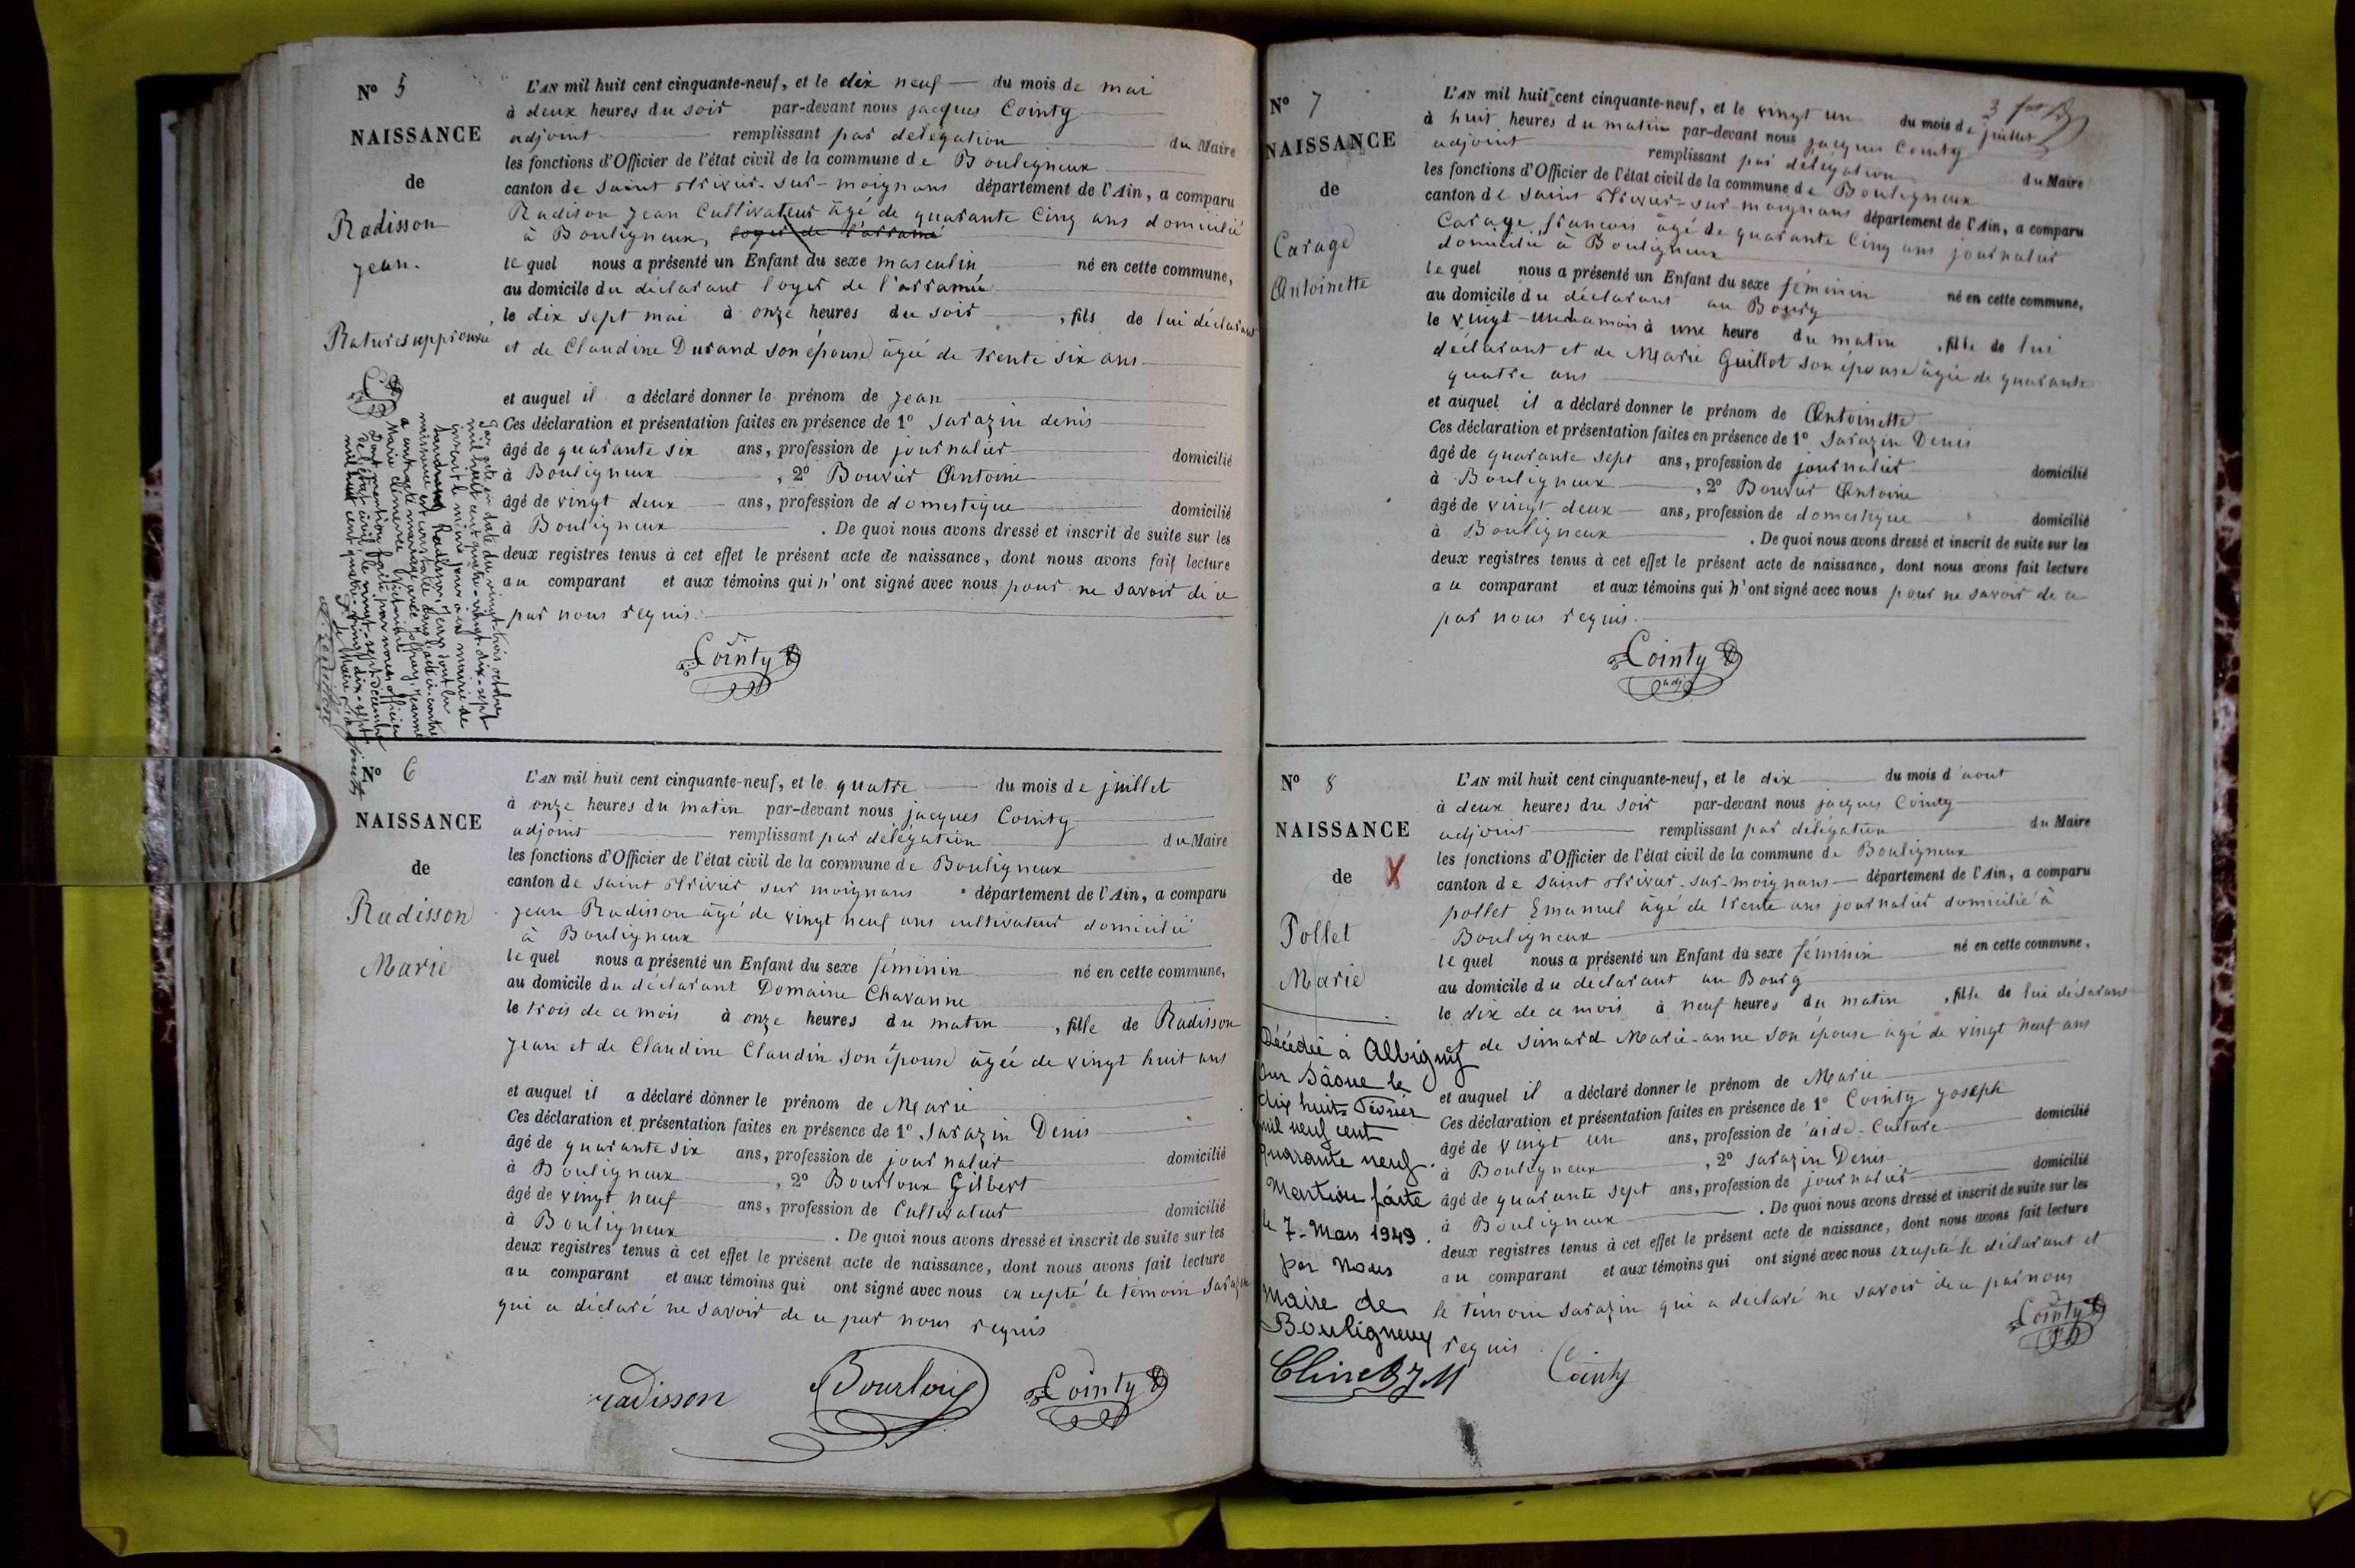 N° 5
NAISSANCE
de
Radisson
jean.
Ratures approuvé
L'AN mil huit cent cinquante-neuf, et le dix neuf du mois de mai
à deux heures du soir par-devant nous jacques Cointy
adjoint remplissant par délégation du Maire
les fonctions d'Officier de l'état civil de la commune de Bouligneux
canton de saint trivier-sur-moignans département de l'Ain, a comparu
Radison jean Cultivateur âgé de quarante Cinq ans domicilié
à Bouligneux,
lequel nous a présenté un Enfant du sexe masculin né en cette commune,
au domicile du déclarant
le dix sept mai à onze heures du soir, fils de lui déclarant
et de Claudine Durand son épouse âgée de trente six ans
et auquel il a déclaré donner le prénom de jean
Ces déclaration et présentation faites en présence de 1° Sarazin denis
âgé de quarante six ans, profession de journalier domicilié
à Bouligneux, 2° Bouvier Antoine
âgé de vingt deux ans, profession de domestique domicilié
à Bouligneux. De quoi nous avons dressé et inscrit de suite sur les
deux registres tenus à cet effet le présent acte de naissance, dont nous avons fait lecture
au comparant et aux témoins qui n'ont signé avec nous pour ne savoir de ce
par nous requis.
Cointy
Par acte en date du vingt-trois octobre
mil huit cent quatre-vingt-dix-sept
inscrit le même jour à la mairie de
Radisson, Jean dont la
naissance est constatée dans l'acte ci-contre
a contracté mariage avec Joffray, Jeanne
Marie Clémence Victorine
Dont mention faite par nous officier
de l'état civil, le vingt-sept décembre
mil huit cent quatre-vingt-dix-sept
N° 6
NAISSANCE
de
Radisson
Marie
L'AN mil huit cent cinquante-neuf, et le quatre du mois de juillet
à onze heures du matin par-devant nous jacques Cointy
adjoint remplissant par délégation du Maire
les fonctions d'Officier de l'état civil de la commune de Bouligneux
canton de saint trivier sur moignans département de l'Ain, a comparu
jean Radisson âgé de vingt neuf ans cultivateur domicilié
à Bouligneux
lequel nous a présenté un Enfant du sexe féminin né en cette commune,
au domicile du déclarant Domaine Chavanne
le trois de ce mois à onze heures du matin, fille de Radisson
jean et de Claudine Claudin son épouse âgée de vingt huit ans
et auquel il a déclaré donner le prénom de Marie
Ces déclaration et présentation faites en présence de 1° Sarazin Denis
âgé de quarante six ans, profession de journalier domicilié
à Bouligneux, 2° Bourloux Gilbert
âgé de vingt neuf ans, profession de Cultivateur domicilié
à Bouligneux. De quoi nous avons dressé et inscrit de suite sur les
deux registres tenus à cet effet le présent acte de naissance, dont nous avons fait lecture
au comparant et aux témoins qui ont signé avec nous excepté le témoin Sarazin
qui a déclaré ne savoir de ce par nous requis
radisson Cointy
N° 7
NAISSANCE
de
Carage
Antoinette
L'AN mil huit cent cinquante-neuf, et le vingt un du mois de juillet
à huit heures du matin par-devant nous jacques Cointy
adjoint remplissant par délégation du Maire
les fonctions d'Officier de l'état civil de la commune de Bouligneux
canton de saint trivier-sur-moignans département de l'Ain, a comparu
Carage françois âgé de quarante Cinq ans journalier
domicilié à Bouligneux
lequel nous a présenté un Enfant du sexe féminin né en cette commune,
au domicile du déclarant au Bourg
le vingt-un à une heure du matin, fille de lui
déclarant et de Marie Guillot son épouse âgée de quarante
quatre ans
et auquel il a déclaré donner le prénom de Antoinette
Ces déclaration et présentation faites en présence de 1° Sarazin Denis
âgé de quarante sept ans, profession de journalier domicilié
à Bouligneux, 2° Bouvier Antoine
âgé de vingt deux ans, profession de domestique domicilié
à Bouligneux. De quoi nous avons dressé et inscrit de suite sur les
deux registres tenus à cet effet le présent acte de naissance, dont nous avons fait lecture
au comparant et aux témoins qui n'ont signé avec nous pour ne savoir de ce
par nous requis.
Cointy
adj
N° 8
NAISSANCE
de X
Pollet
Marie
L'AN mil huit cent cinquante-neuf, et le dix du mois d'aout
à deux heures du soir par-devant nous jacques Cointy
adjoint remplissant par délégation du Maire
les fonctions d'Officier de l'état civil de la commune de Bouligneux
canton de saint trivier-sur-moignans département de l'Ain, a comparu
pollet Emanuel âgé de trente ans journalier domicilié à
Bouligneux
lequel nous a présenté un Enfant du sexe féminin né en cette commune,
au domicile du déclarant au Bourg
le dix de ce mois à neuf heures du matin, fille de lui déclarant
et de simard Marie-anne son épouse âgé de vingt neuf ans
et auquel il a déclaré donner le prénom de Marie
Ces déclaration et présentation faites en présence de 1° Cointy joseph
âgé de vingt un ans, profession de aide-Culture domicilié
à Bouligneux, 2° Sarazin Denis
âgé de quarante sept ans, profession de journalier domicilié
à Bouligneux. De quoi nous avons dressé et inscrit de suite sur les
deux registres tenus à cet effet le présent acte de naissance, dont nous avons fait lecture
au comparant et aux témoins qui ont signé avec nous excepté le déclarant et
le témoin sarazin qui a déclaré ne savoir de ce par nous
requis. Cointy
Cointy
Décédée à Albigny
sur Saône le
dix huit Février
mil neuf cent
quarante neuf.
Mention faite
le 7-Mars 1949.
par nous
Maire de
Bouligneux